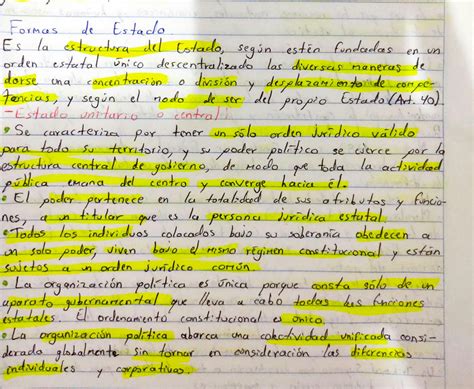 Formas de Estado
Es la estructura del Estado, según estén fundadas en un
orden estatal único descentralizado las diversas maneras de
darse una concentración o división y desplazamiento de compe-
tencias, y según el modo de ser del propio Estado (Art. 40)
-Estado unitario o central:
• Se caracteriza por tener un sólo orden jurídico válido
para todo su territorio, y su poder político se cierce por la
estructura central de gobierno, de modo que toda la actividad
pública emana del centro y converge hacia él.
• El poder pertenece en la totalidad de sus atributos y funcio-
nes, a un titular que es la persona jurídica estatal.
• Todos los individuos colocados bajo su soberanía obedecen a
un solo poder, viven bajo el mismo régimen constitucional y están
sujetos a un orden jurídico común.
• La organización política es única porque consta sólo de un
aparato gubernamental que lleva a cabo todas las funciones
estatales. El ordenamiento constitucional es único.
• La organización política abarca una colectividad unificada consi-
derada globalmente sin tomar en consideración las diferencias
individuales y corporativas.